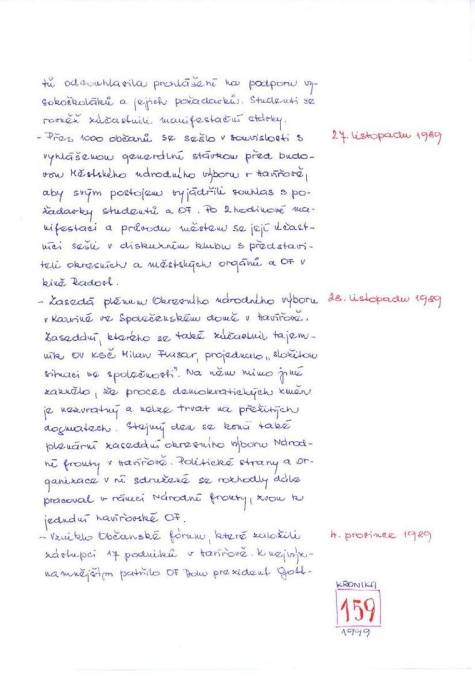 tů odsouhlasila prohlášení na podporu vy-
sokoškoláků a jejich požadavků. Studenti se
rovněž zúčastnili manifestační stávky.
- Přes 1000 občanů se sešlo v souvislosti s 27. listopadu 1989
vyhlášenou generální stávkou před budo-
vou Městského národního výboru v Havířově,
aby svým postojem vyjádřili souhlas s po-
žadavky studentů a OF. Po 2 hodinové ma-
nifestaci a průvodu městem se její účast-
níci sešli v diskuzním klubu s představi-
teli okresních a městských orgánů a OF v
kině Radost.
- Zasedá plénum Okresního národního výboru 28. listopadu 1989
v Karviné ve Společenském domě v Havířově.
Zasedání, kterého se také zúčastnil tajem-
ník OV KSČ Milan, projednalo "složitou
situaci ve společnosti". Na něm mimo jiné
zaznělo, že proces demokratických změn
je nezvratný a nelze trvat na přežitých
dogmatech. Stejný den se koná také
plenární zasedání okresního výboru Národ-
ní fronty v Havířově. Politické strany a or-
ganizace v ní sdružené se rozhodly dále
pracovat v rámci Národní fronty, zvou k
jednání havířovské OF.
- Vzniklo Občanské fórum, které založili 4. prosince 1989
zástupci 17 podniků v Havířově. K nejvýz-
namnějším patřilo OF Dolu prezident Gott-
KRONIKA
159
1999